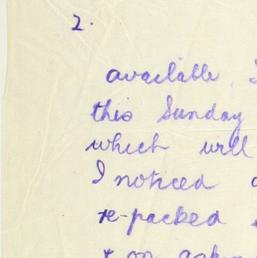 2.
available.
this Sunday
which will
I noticed
re-packed